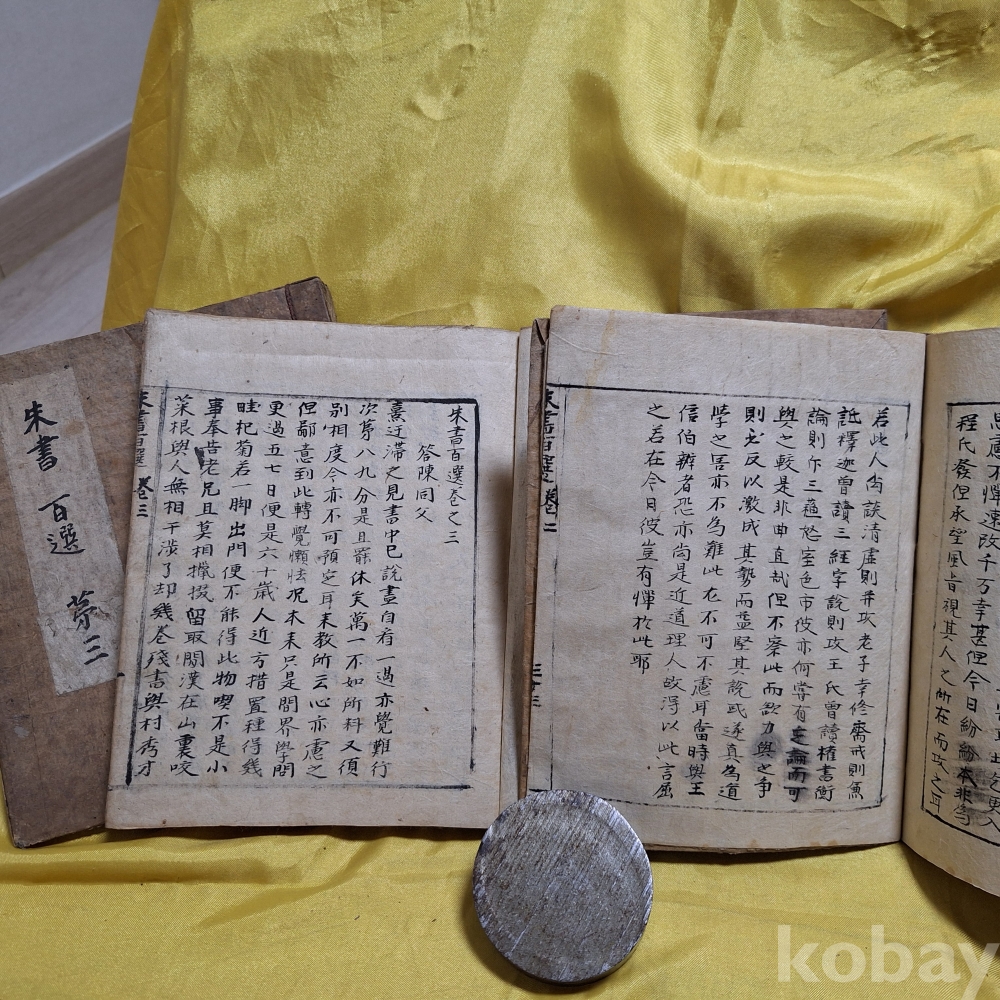 朱書百選 第三
朱書百選 卷三
朱書百選卷之三
答陳同父
熹迂滯之見書中已說盡自看一過亦覺難行
次第八九分是且罷休矣萬一不如所料又須
別相度今亦不可預定耳來教所云心亦慮之
但鄙意到此轉覺懶怯况未来只是閑界學問
更過五七日便是六十歲人近方措置種得幾
畦杞菊若一脚出門便不能得此物喫不是小
事奉告老兄且莫相攛掇留取閑漢在山裏咬
菜根與人無相干涉了却幾卷殘書與村秀才
朱書百選 卷二
三十三
若此人尙談清虛則幷攻老子幸修齋戒則兼
詆釋迦曾讀三經字說則攻王氏曾讀權書衡
論則斥三蘇怒室色市彼亦何嘗有定論而可
與之較是非曲直哉但不察此而欲力與之爭
則尤反以激成其勢而益堅其說或遂真為道
學之害亦不為難此在不可不慮耳當時與王
信伯辨者恐亦尙是近道理人故得以此言屈
之若在今日彼豈有憚於此耶
程氏發但承望風旨視其人之所在而攻之耳
思慮不憚速改千万幸甚但今日紛紛本非為
kobay